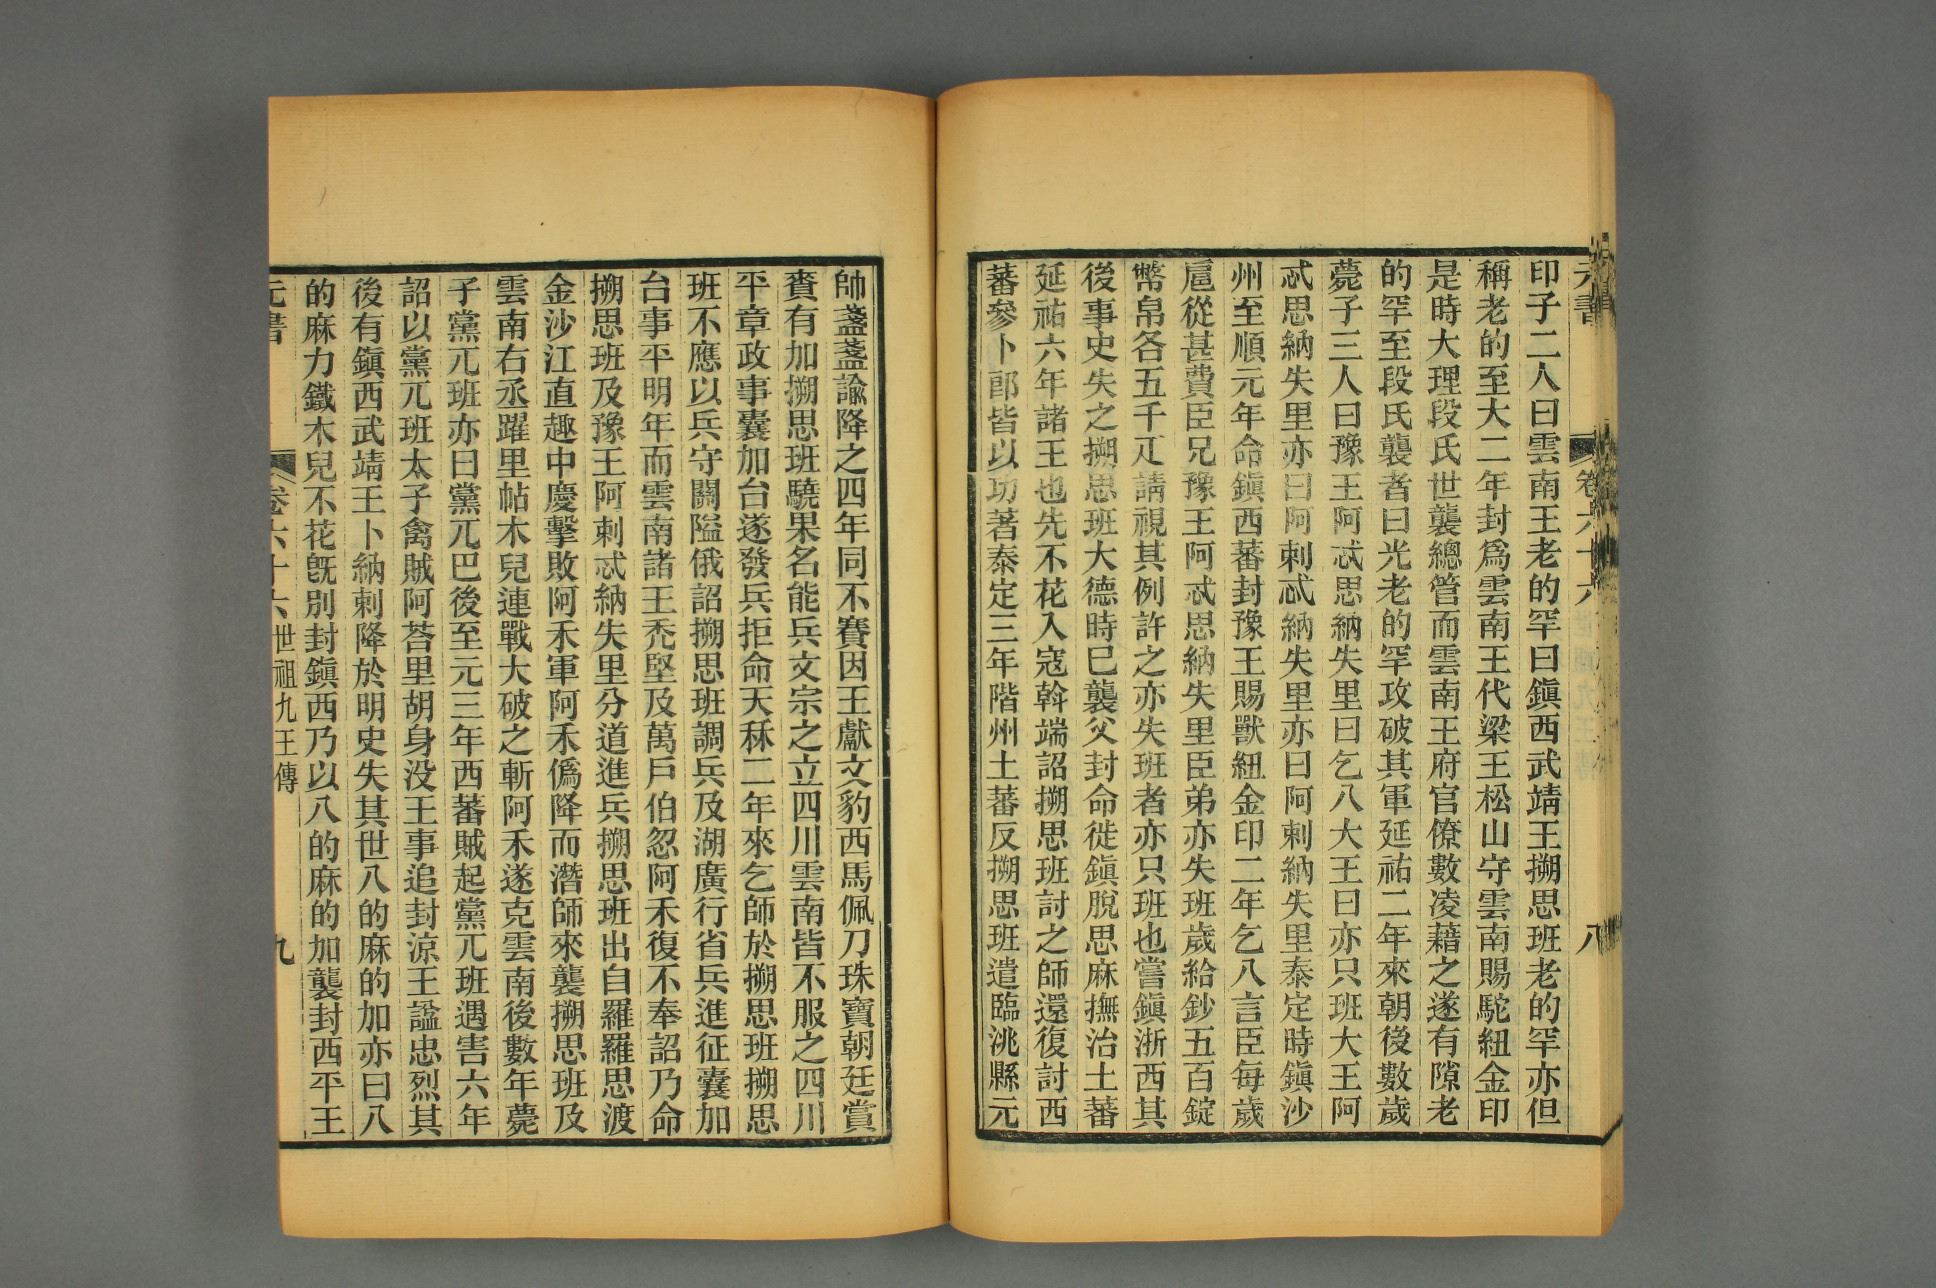 元書
卷六十六
八
印子二人曰雲南王老的罕曰鎭西武靖王搠思班老的罕亦但
稱老的至大二年封爲雲南王代梁王松山守雲南賜駝紐金印
是時大理段氏世襲總管而雲南王府官僚數凌藉之遂有隙老
的罕至段氏襲者曰光老的罕攻破其軍延祐二年來朝後數歲
薨子三人曰豫王阿忒思納失里曰乞八大王曰亦只班大王阿
忒思納失里亦曰阿剌忒納失里亦曰阿剌納失里泰定時鎭沙
州至順元年命鎭西蕃封豫王賜獸紐金印二年乞八言臣每歲
扈從甚費臣兄豫王阿忒思納失里臣弟亦失班歲給鈔五百錠
幣帛各五千疋請視其例許之亦失班者亦只班也嘗鎭浙西其
後事史失之搠思班大德時已襲父封命徙鎭脫思麻撫治土蕃
延祐六年諸王也先不花入寇斡端詔搠思班討之師還復討西
蕃參卜郎皆以功著泰定三年階州土蕃反搠思班遣臨洮縣元
帥盞盞諭降之四年同不賽因王獻文豹西馬佩刀珠寶朝廷賞
賚有加搠思班驍果名能兵文宗之立四川雲南皆不服之四川
平章政事囊加台遂發兵拒命天秝二年來乞師於搠思班搠思
班不應以兵守關隘俄詔搠思班調兵及湖廣行省兵進征囊加
台事平明年而雲南諸王禿堅及萬戶伯忽阿禾復不奉詔乃命
搠思班及豫王阿剌忒納失里分道進兵搠思班出自羅羅思渡
金沙江直趣中慶擊敗阿禾軍阿禾僞降而潛師來襲搠思班及
雲南右丞躍里帖木兒連戰大破之斬阿禾遂克雲南後數年薨
子黨兀班亦曰黨兀巴後至元三年西蕃賊起黨兀班遇害六年
詔以黨兀班太子禽賊阿荅里胡身没王事追封涼王諡忠烈其
後有鎭西武靖王卜納剌降於明史失其世八的麻的加亦曰八
的麻力鐵木兒不花旣別封鎭西乃以八的麻的加襲封西平王
元書
卷六十六世祖九王傳
九